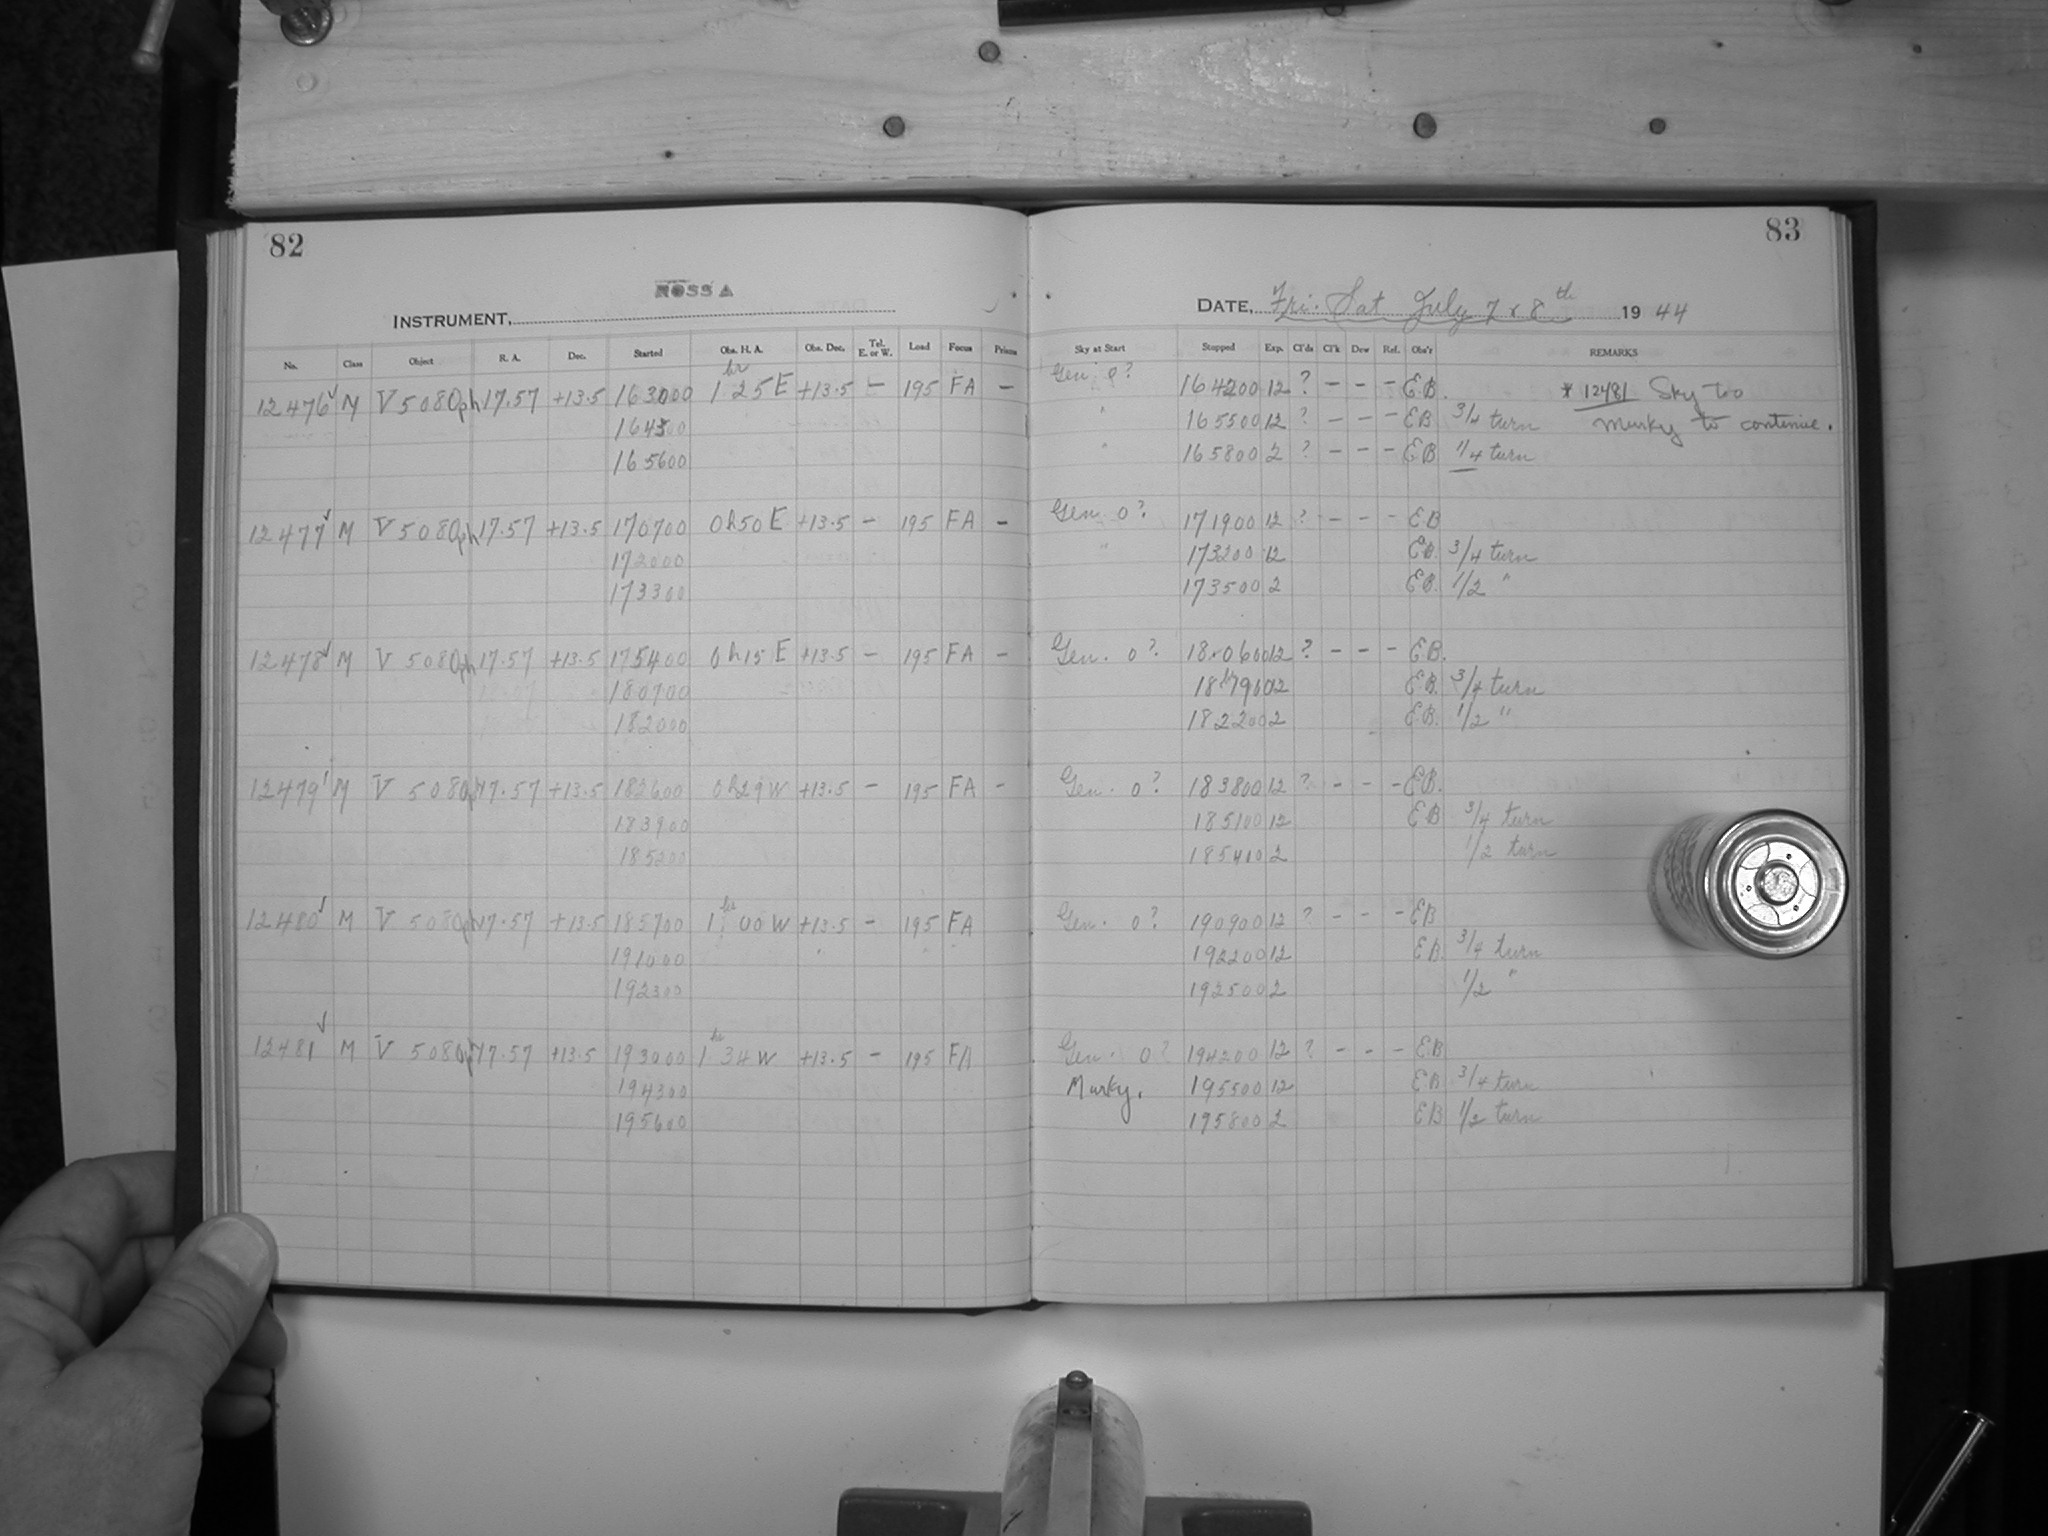 82
ROSS A
INSTRUMENT,
No. Class Object R. A. Dec. Started Obs. H. A. Obs. Dec. Tel. E. or W. Load Focus Prisms
12476 M V 508 Oph 17.57 +13.5 163000 1 hr 25 E +13.5 – 195 FA –
164300
165600
12477 M V 508 Oph 17.57 +13.5 170700 0h50 E +13.5 – 195 FA –
172000
173300
12478 M V 508 Oph 17.57 +13.5 175400 0h15 E +13.5 – 195 FA –
180700
182000
12479 M V 508 Oph 17.57 +13.5 182600 0h29 W +13.5 – 195 FA –
183900
185200
12480 M V 508 Oph 17.57 +13.5 185700 1 hr 00 W +13.5 – 195 FA
191000
192300
12481 M V 508 Oph 17.57 +13.5 193000 1 hr 34 W +13.5 – 195 FA
194300
195600
83
DATE, Fri. Sat July 7 & 8th 1944
Sky at Start Stopped Exp. Cl'ds Cl'k Dew Ref. Obs'r REMARKS
Gen. 0? 164200 12 ? – – – E.B. * 12481 Sky too
" 165500 12 ? – – – EB 3/4 turn murky to continue.
" 165800 2 ? – – – EB 1/4 turn
Gen 0? 171900 12 ? – – – EB
" 173200 12 EB. 3/4 turn
173500 2 EB. 1/2 "
Gen. 0? 180600 12 ? – – – EB.
12 EB. 3/4 turn
182200 2 EB. 1/2 "
Gen. 0? 183800 12 ? – – – EB.
185100 12 EB 3/4 turn
185400 2 1/2 turn
Gen. 0? 190900 12 ? – – – EB
192200 12 EB. 3/4 turn
192500 2 1/2 "
Gen. 0? 194200 12 ? – – – EB
Murky. 195500 12 EB 3/4 turn
195800 2 EB 1/2 turn